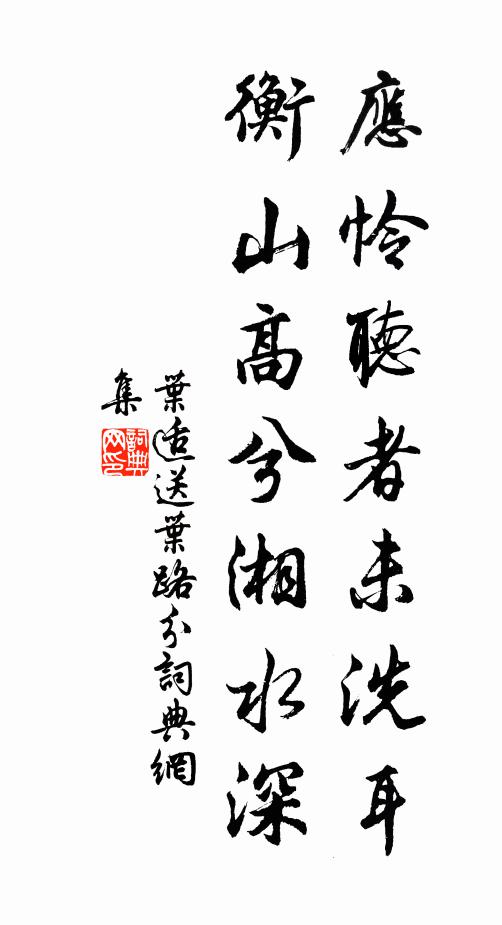 應怜聽者未洗耳
衡山高兮湘水深
葉适送葉路分詞典網
集
詞典
网印